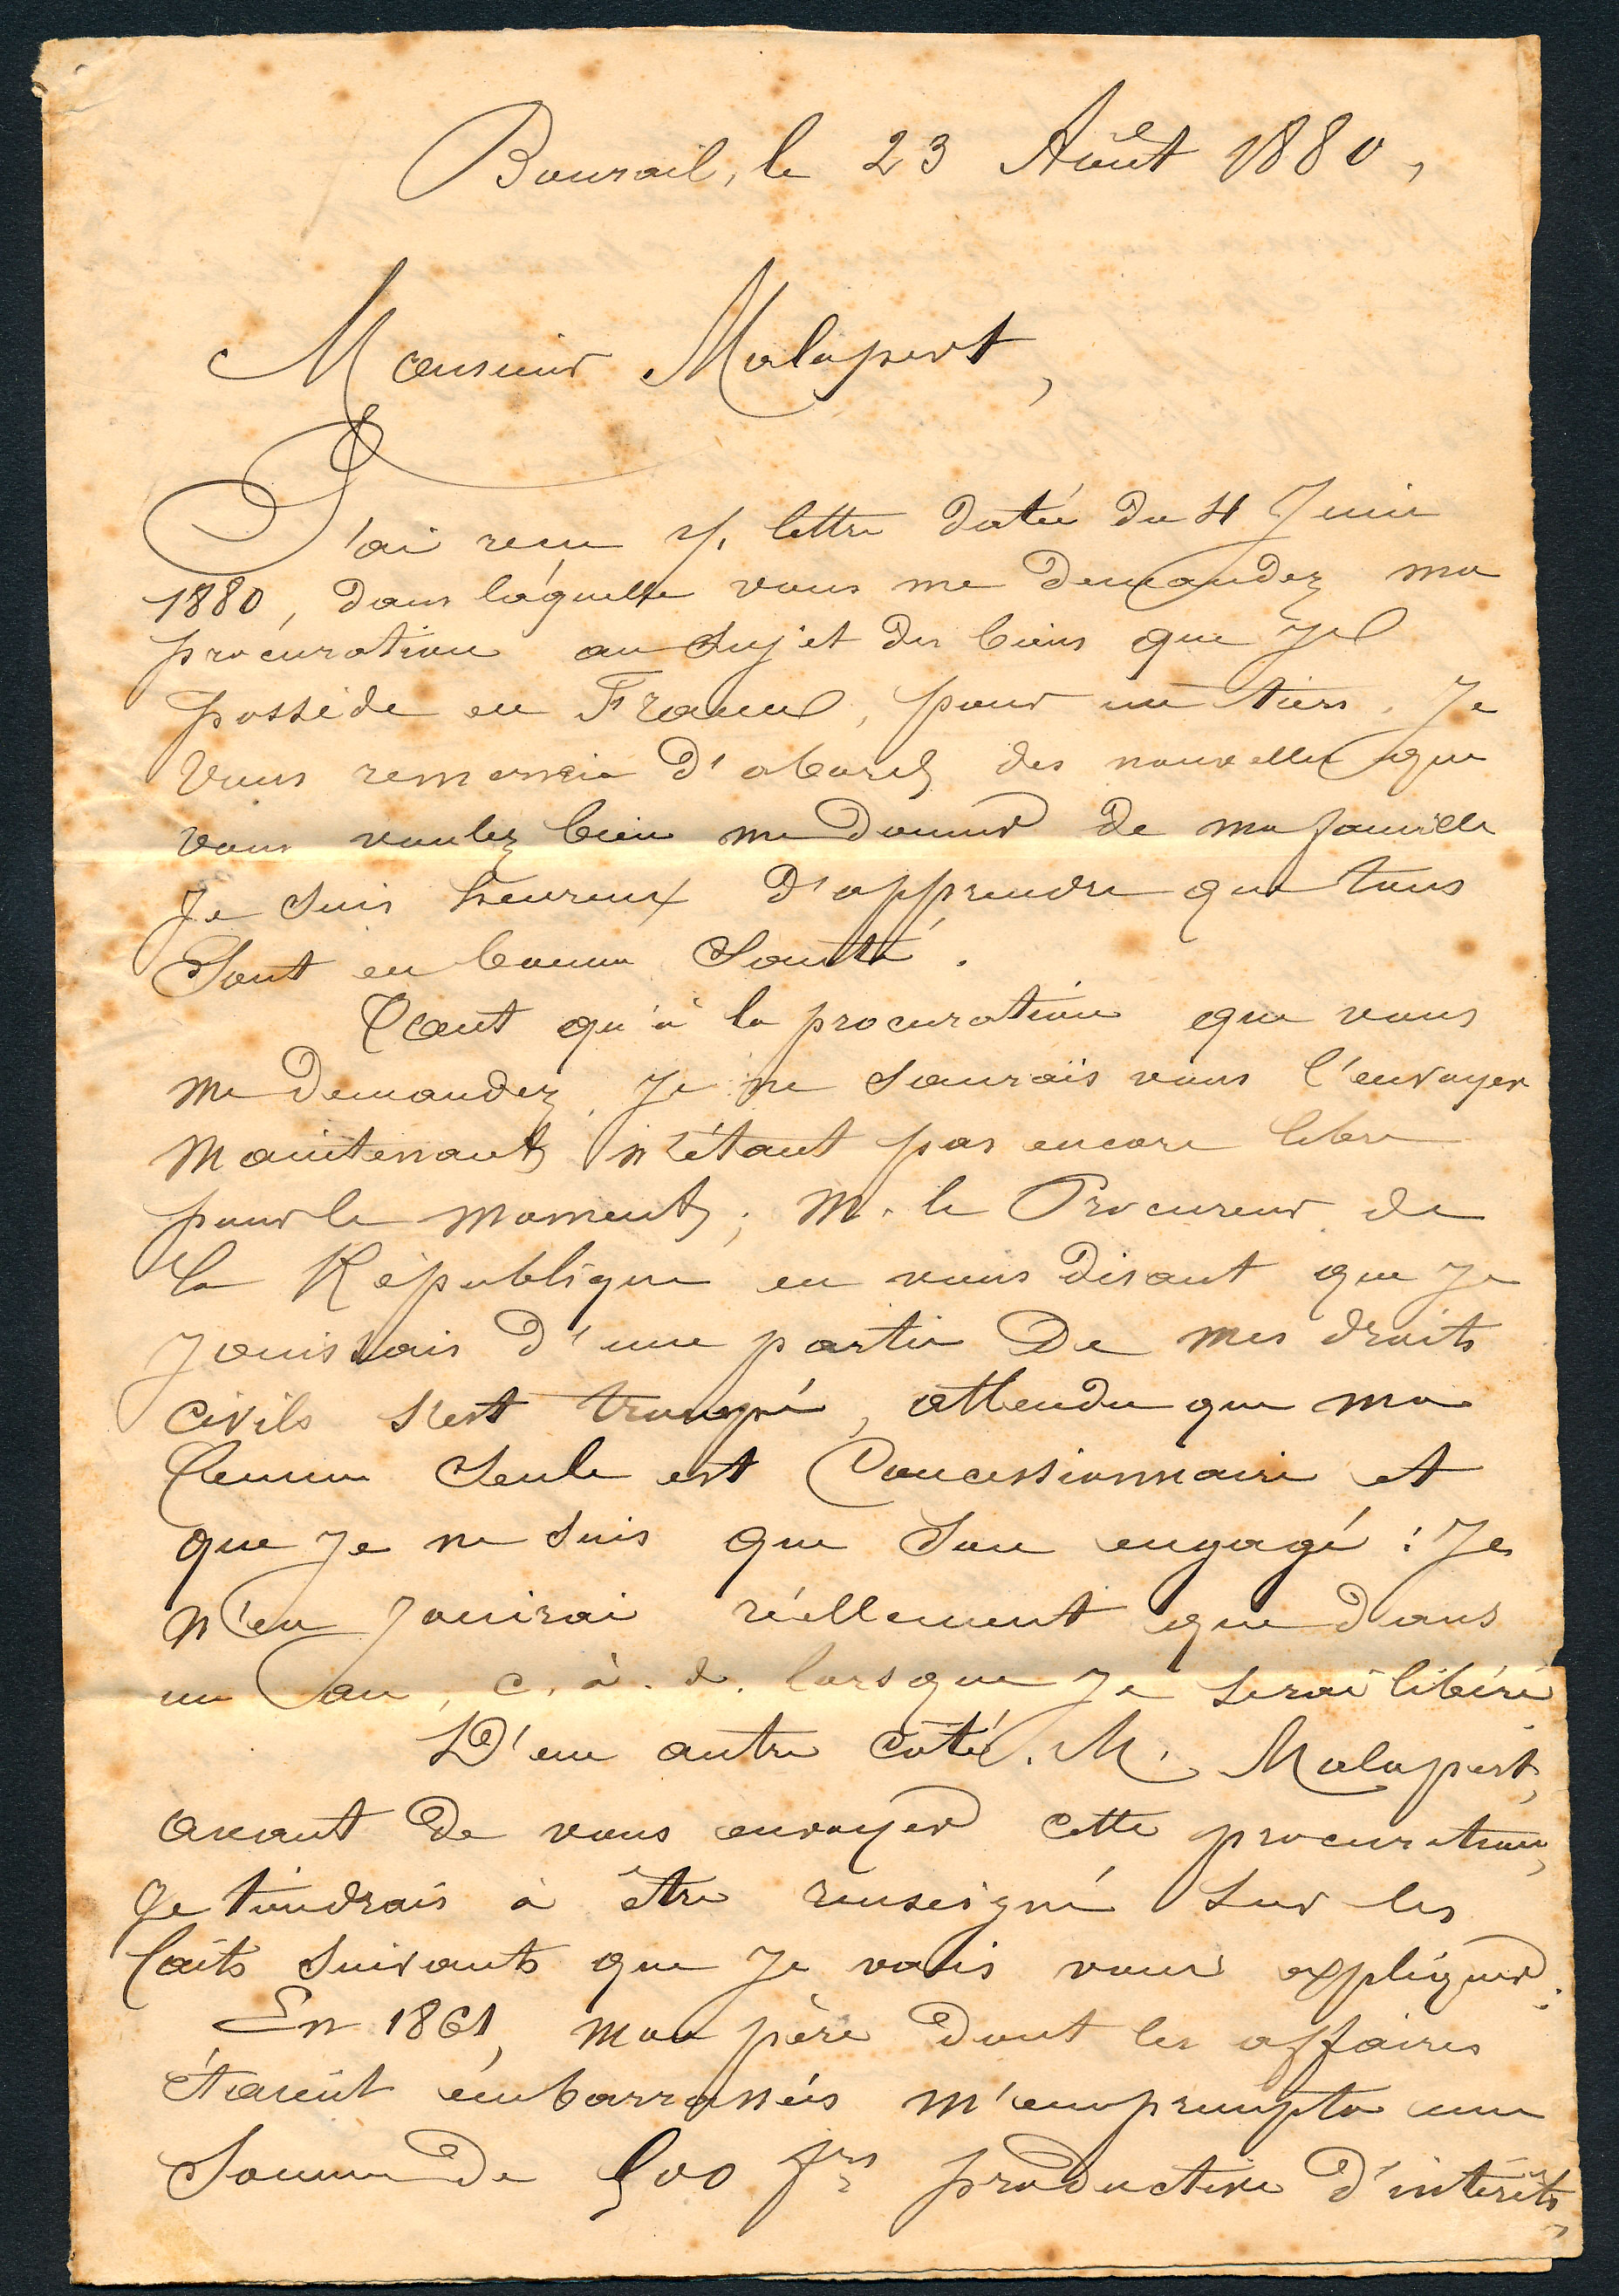 Bourail, le 23 Août 1880,
Monsieur Malapert,
J'ai reçu v. lettre datée du 4 Juin
1880, dans laquelle vous me demandez ma
procuration au sujet des biens que je
possède en France, pour un tiers. Je
vous remercie d'abord des nouvelles que
vous voulez bien me donner de ma famille
Je suis heureux d'apprendre que tous
sont en bonne santé.
Tant qu'à la procuration que vous
me demandez, je ne saurais vous l'envoyer
maintenant n'étant pas encore libre
pour le moment; M. le Procureur de
la République en vous disant que je
jouissais d'une partie de mes droits
civils s'est trompé, attendu que ma
femme seule est Concessionnaire et
que je ne suis que son engagé: Je
n'en jouirai réellement que dans
un an, c. à. d. lorsque je serai libéré
D'un autre côté. M. Malapert,
avant de vous envoyer cette procuration,
je tiendrais à être renseigné sur les
faits suivants que je vais vous expliquer:
En 1861, mon père dont les affaires
étaient embarrassées m'emprumpta une
somme de 500 frs productive d'intérêts,